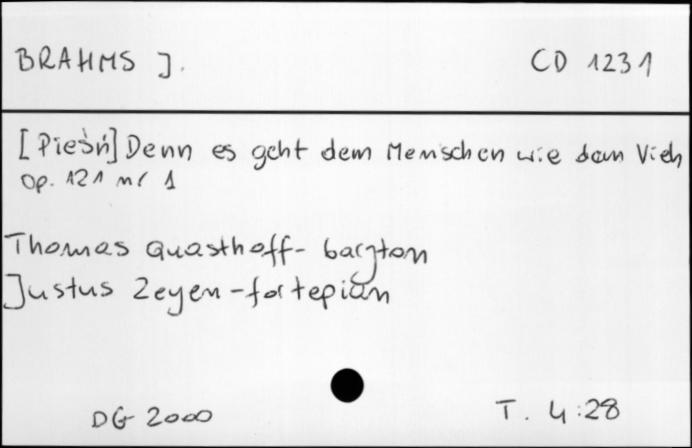 BRAHMS J. CD 1231
[Pieśń] Denn es geht dem Menschen wie dem Vieh
op. 121 nr 1
Thomas Quasthoff - baryton
Justus Zeyen - fortepian
DG 2000 T. 4:28